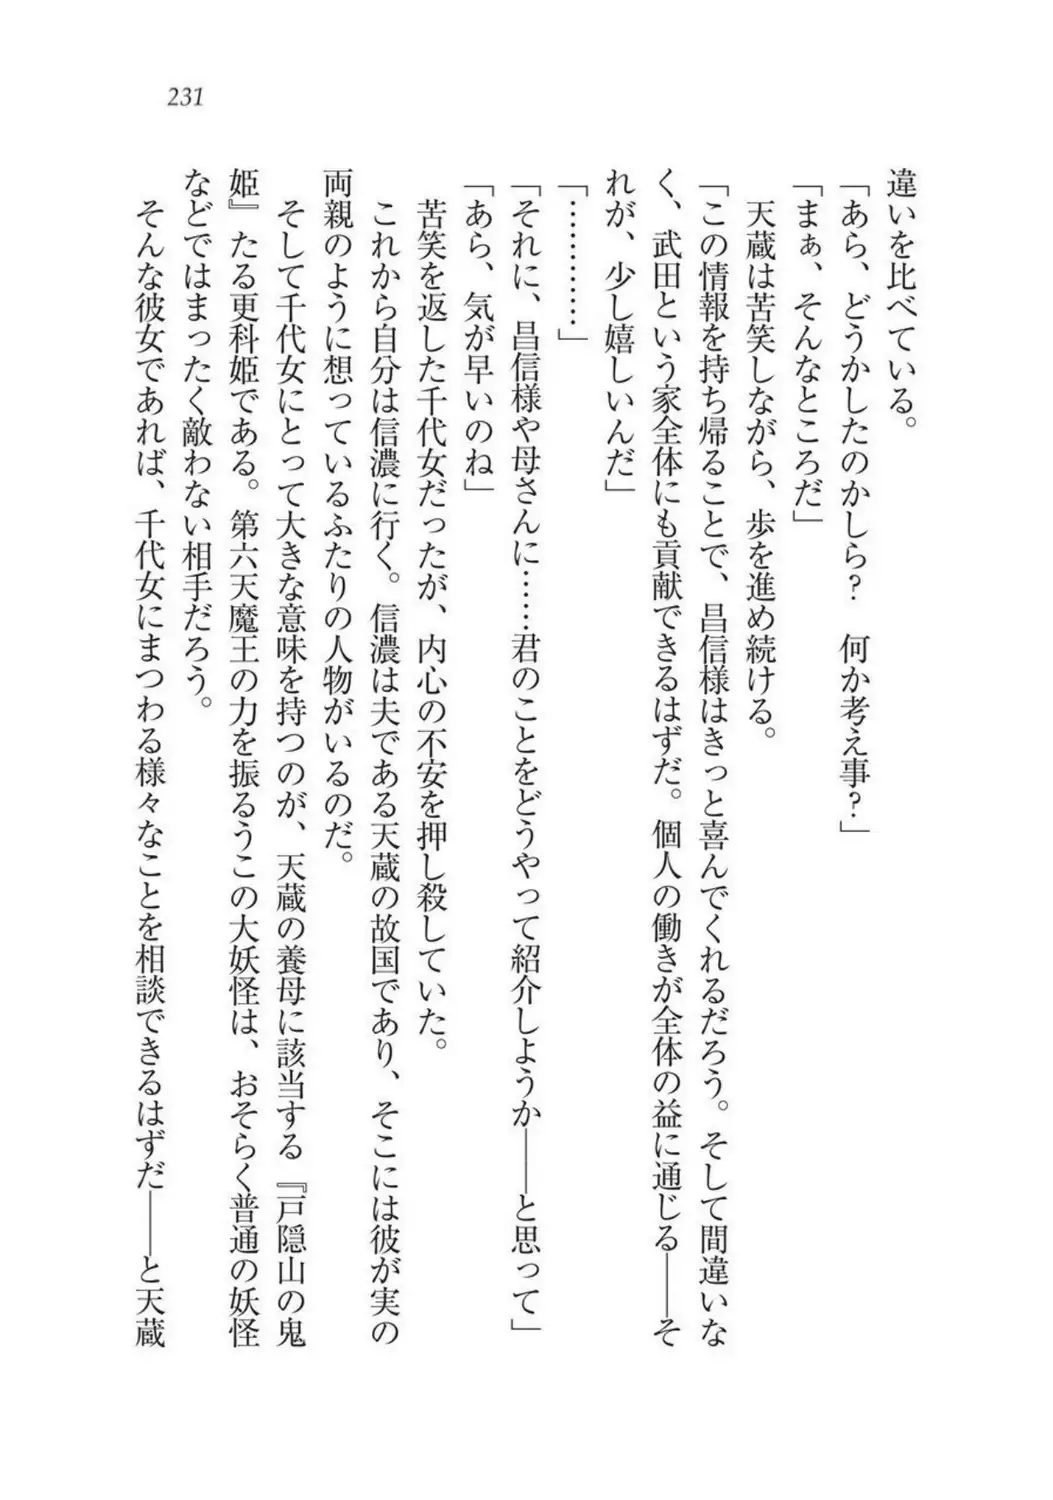 231
違いを比べている。
「あら、どうかしたのかしら？　何か考え事？」
「まぁ、そんなところだ」
　天蔵は苦笑しながら、歩を進め続ける。
「この情報を持ち帰ることで、昌信様はきっと喜んでくれるだろう。そして間違いな
く、武田という家全体にも貢献できるはずだ。個人の働きが全体の益に通じる――そ
れが、少し嬉しいんだ」
「…………」
「それに、昌信様や母さんに……君のことをどうやって紹介しようか――と思って」
「あら、気が早いのね」
　苦笑を返した千代女だったが、内心の不安を押し殺していた。
　これから自分は信濃に行く。信濃は夫である天蔵の故国であり、そこには彼が実の
両親のように想っているふたりの人物がいるのだ。
　そして千代女にとって大きな意味を持つのが、天蔵の養母に該当する『戸隠山の鬼
姫』たる更科姫である。第六天魔王の力を振るうこの大妖怪は、おそらく普通の妖怪
などではまったく敵わない相手だろう。
　そんな彼女であれば、千代女にまつわる様々なことを相談できるはずだ――と天蔵